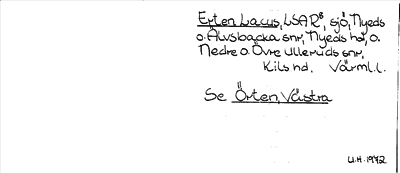 Erten Lacus, LSAR⁸, sjö, Nyeds
o. Älvsbacka snr, Nyeds hd, o.
Nedre o. Övre Ulleruds snr,
Kils hd, Värml.l.
Se Örten, Västra
U.H. 1972